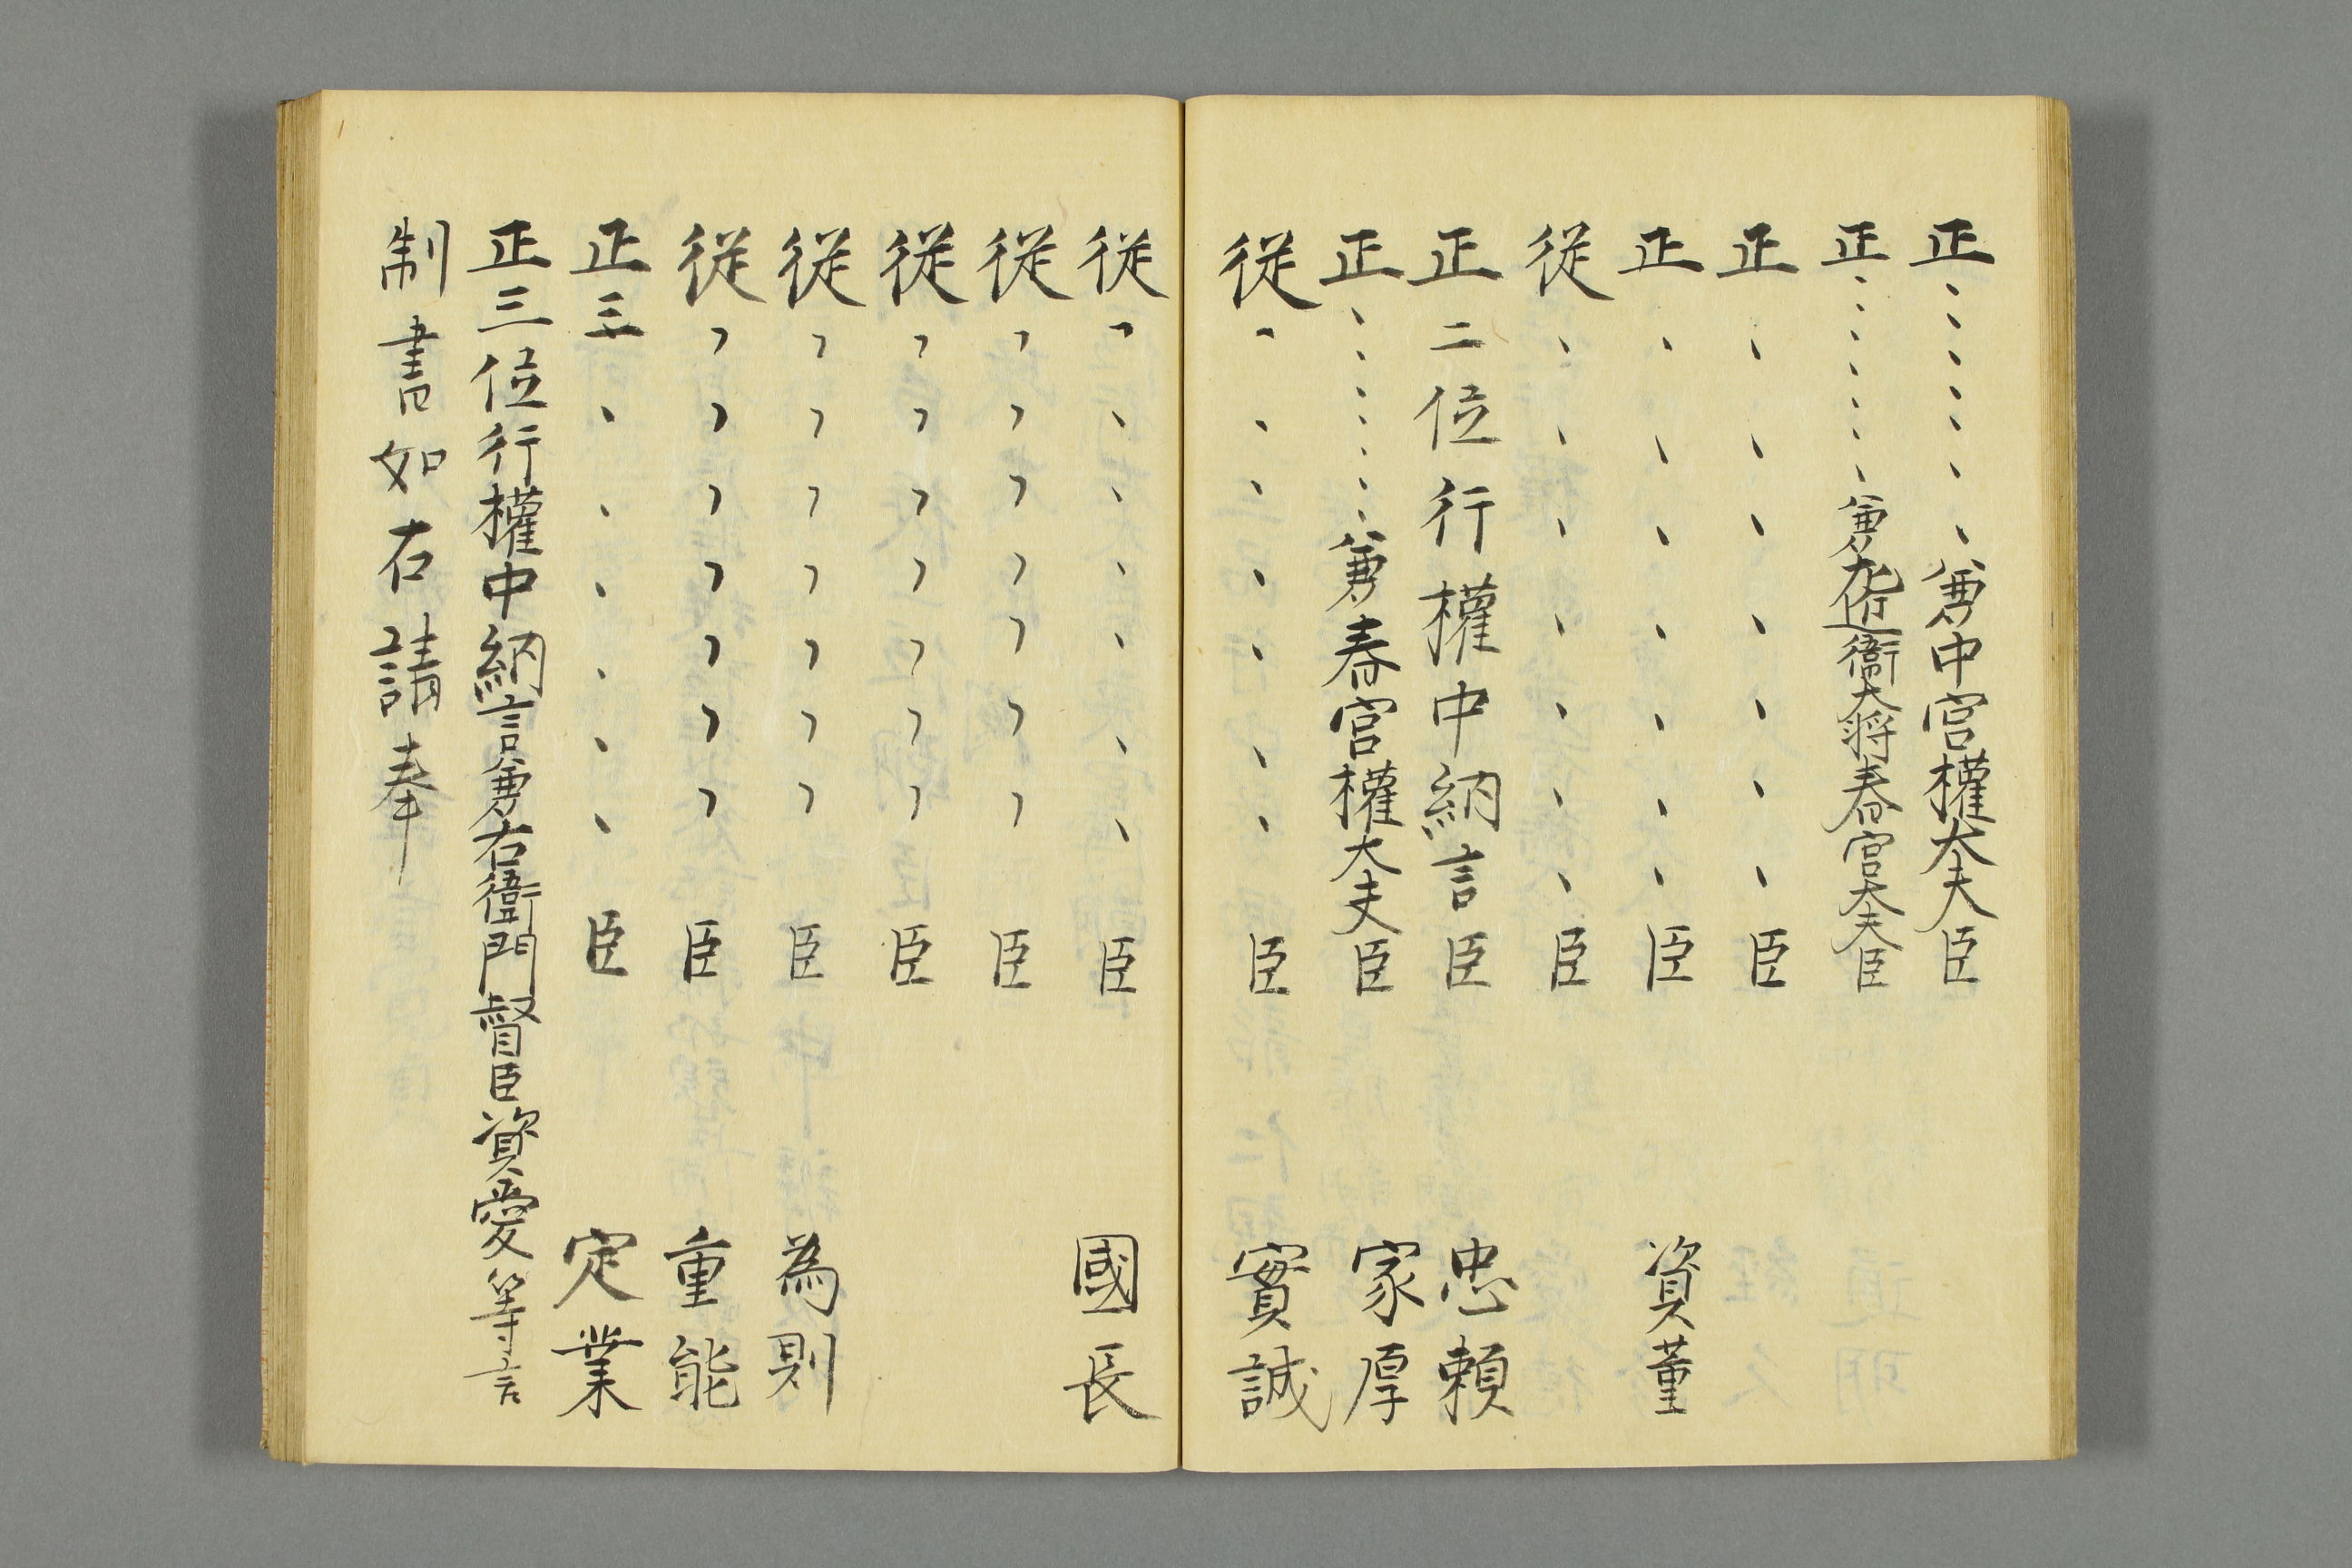 正、、、、、、、兼中宮權大夫臣
正、、、、、、、兼左近衛大将春宮大夫臣
正、、、、、、、臣
正、、、、、、、臣 資董
従、、、、、、、臣
正二位行權中納言臣 忠頼
正、、、、、、、兼春宮權大夫臣 家厚
従、、、、、、、臣 實誠
従、、、、、、、臣 國長
従、、、、、、、臣
従、、、、、、、臣
従、、、、、、、臣 為則
従、、、、、、、臣 重能
正三、、、、、、臣 定業
正三位行權中納言兼右衛門督臣資愛等言
制書如右請奉